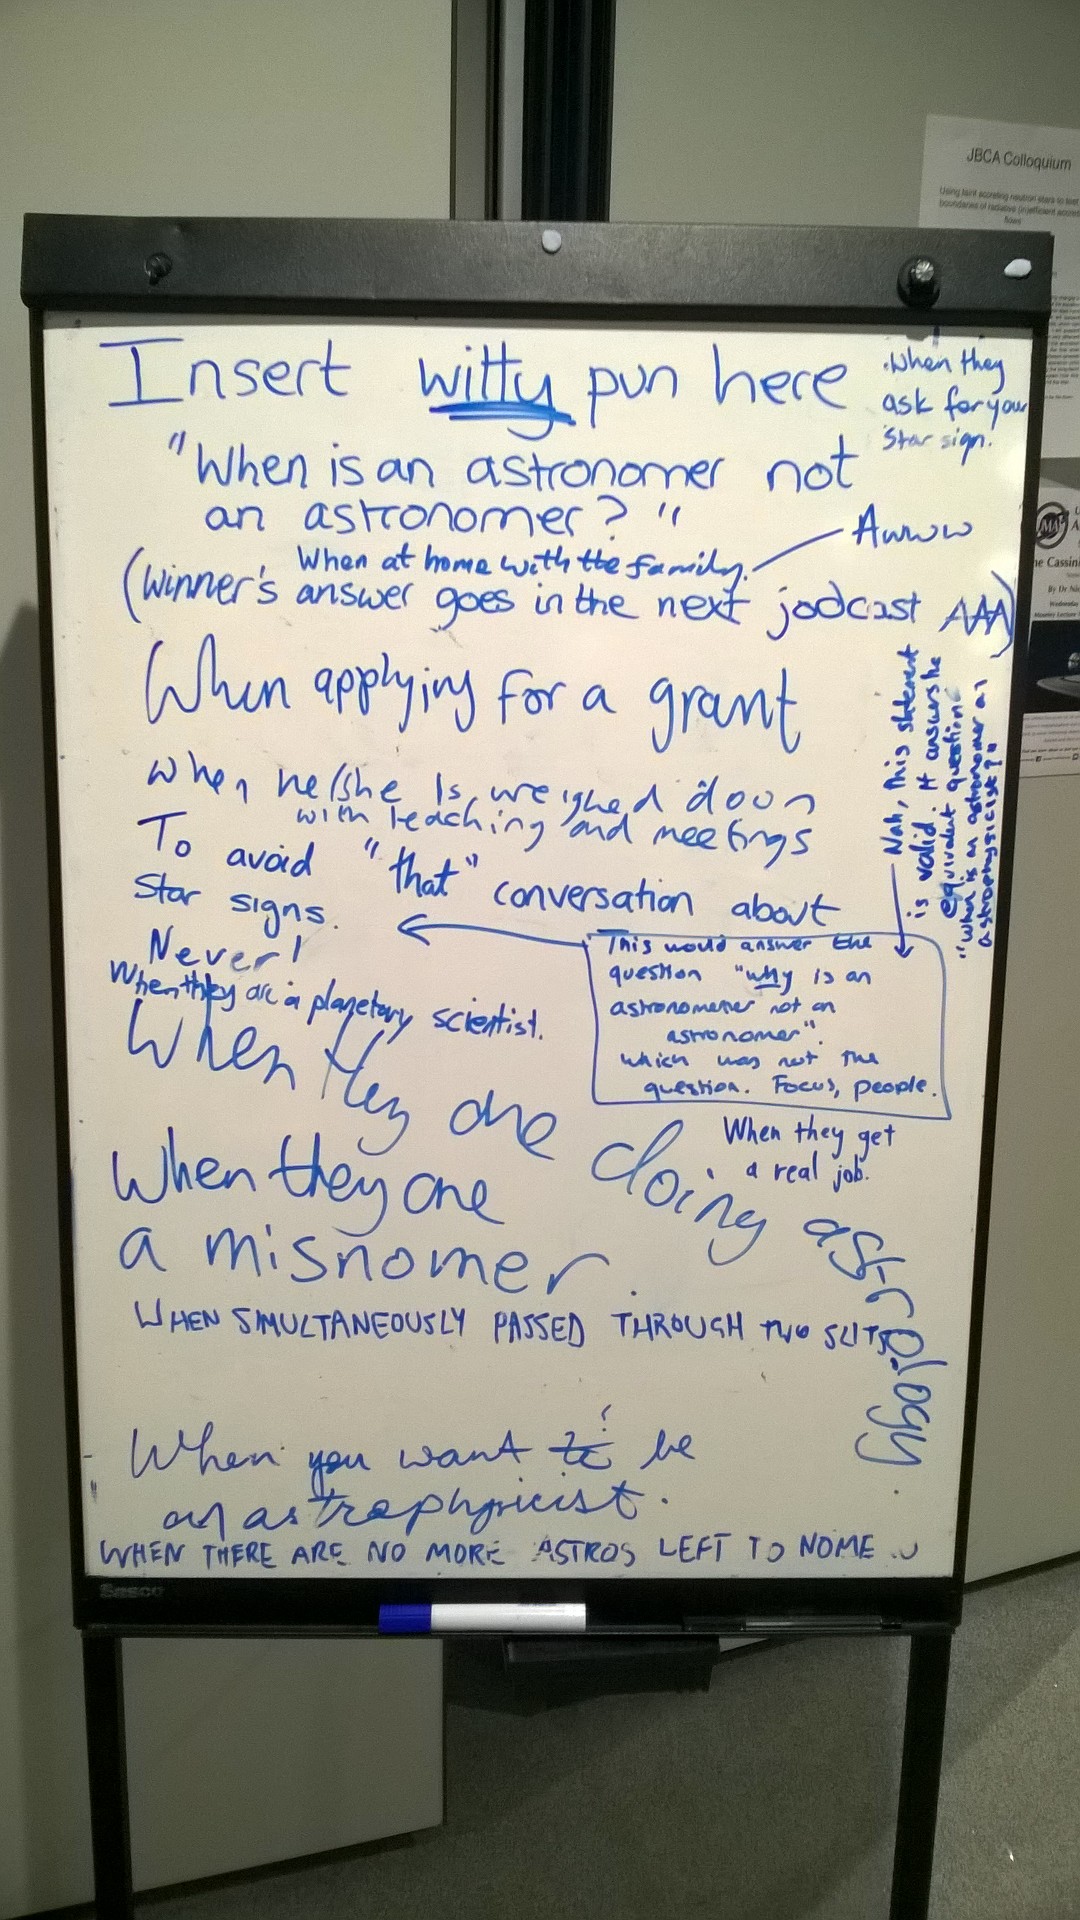 JBCA Colloquium
Using faint accreting neutron stars to test
boundaries of radiative (in)efficient
flows
Insert witty pun here
.When they
ask for your
Star sign.
"When is an astronomer not
an astronomer? "
Awww
When at home with the family.
(Winner's answer goes in the next jodcast AAA)
When applying for a grant
when he/she Is weighed down
with teaching and meetings
To avoid "that" conversation about
Star signs.
Nah, this statement
is valid. It answers the
equivalent question
"when is an astronomer an
astrophysicist?"
Never!
This would answer the
question "why is an
astronomener not an
astronomer".
which was not the
question. Focus, people.
When they are a planetary scientist.
When they are doing astrology
When they get
a real job.
When they are
a misnomer
WHEN SIMULTANEOUSLY PASSED THROUGH TWO SLITS
When you want to be
an astrophysicist.
WHEN THERE ARE NO MORE ASTROS LEFT TO NOME
Sasco
he Cassini
By Dr